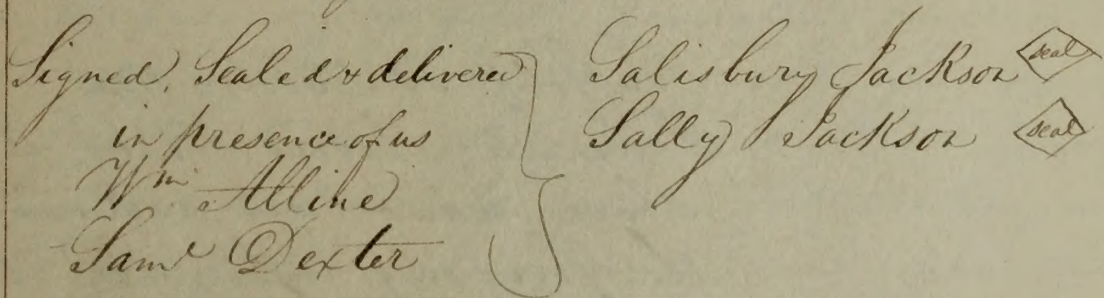 Signed, Sealed & delivered
in presence of us
Wm Alline
Saml Dexter
Salisbury Jackson seal
Sally Jackson seal